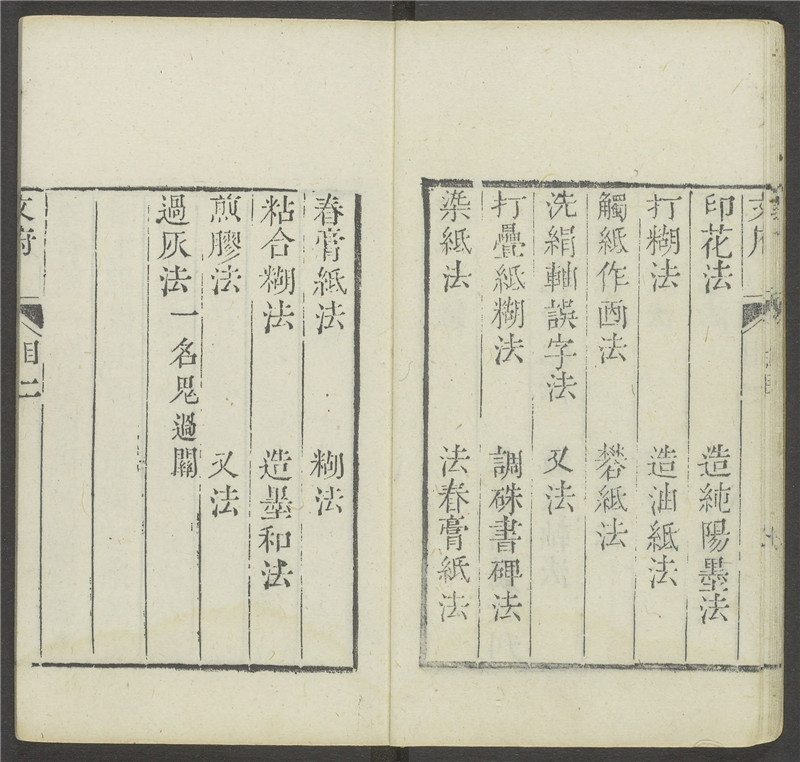 印花法　造純陽墨法
打糊法　造油紙法
觸紙作画法　礬紙法
洗絹軸誤字法　又法
打疊紙糊法　調硃書碑法
染紙法　法春膏紙法
春膏紙法　糊法
粘合糊法　造墨和法
煎膠法　又法
過灰法　一名鬼過關
文府　目二